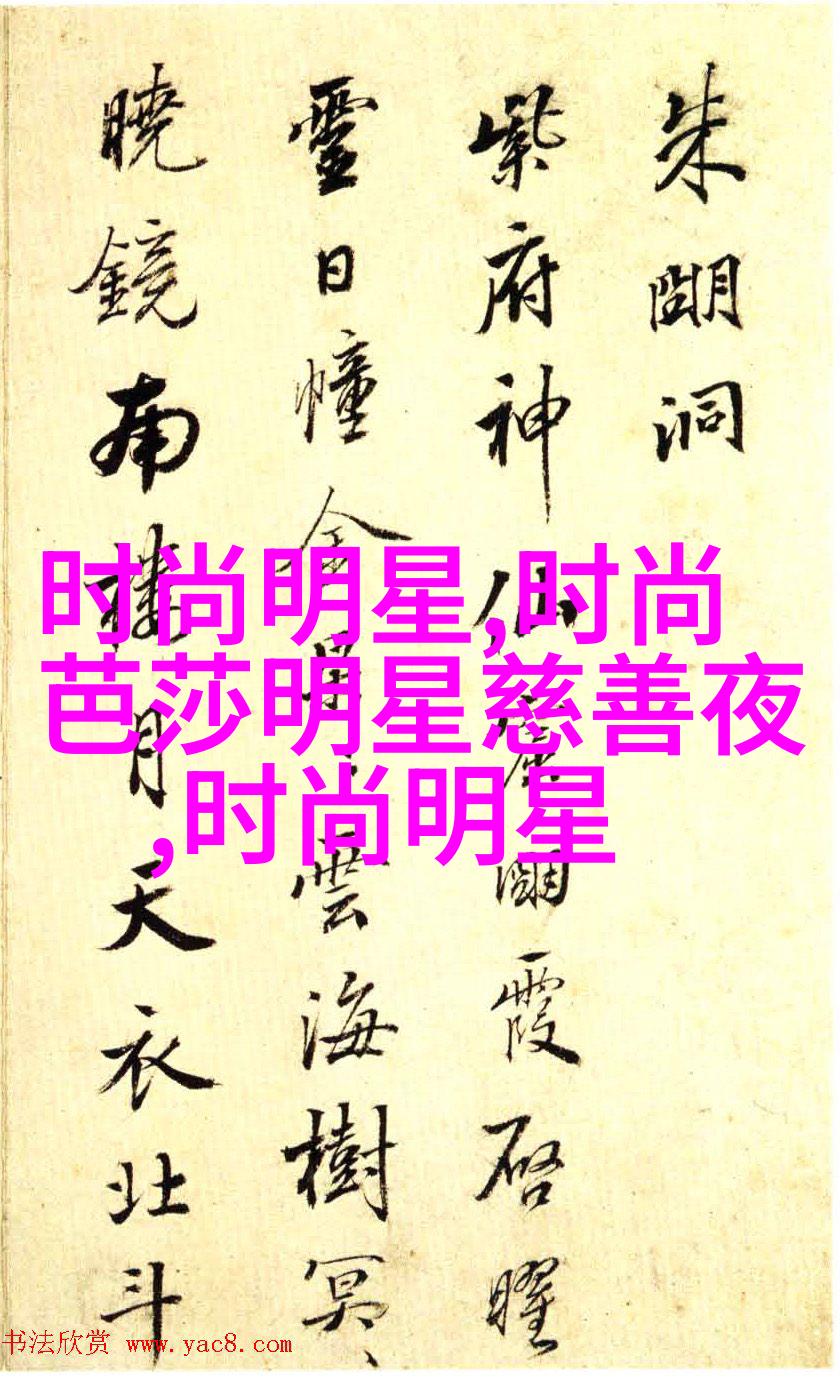 朱朙洞
紫府神仙朙霞启曜
靈日幢金雲海樹冥、
曉鏡南樓月天衣北斗
时尚明星,时尚
芭莎明星慈善夜
,时尚明星
书法欣赏 www.yac8.com